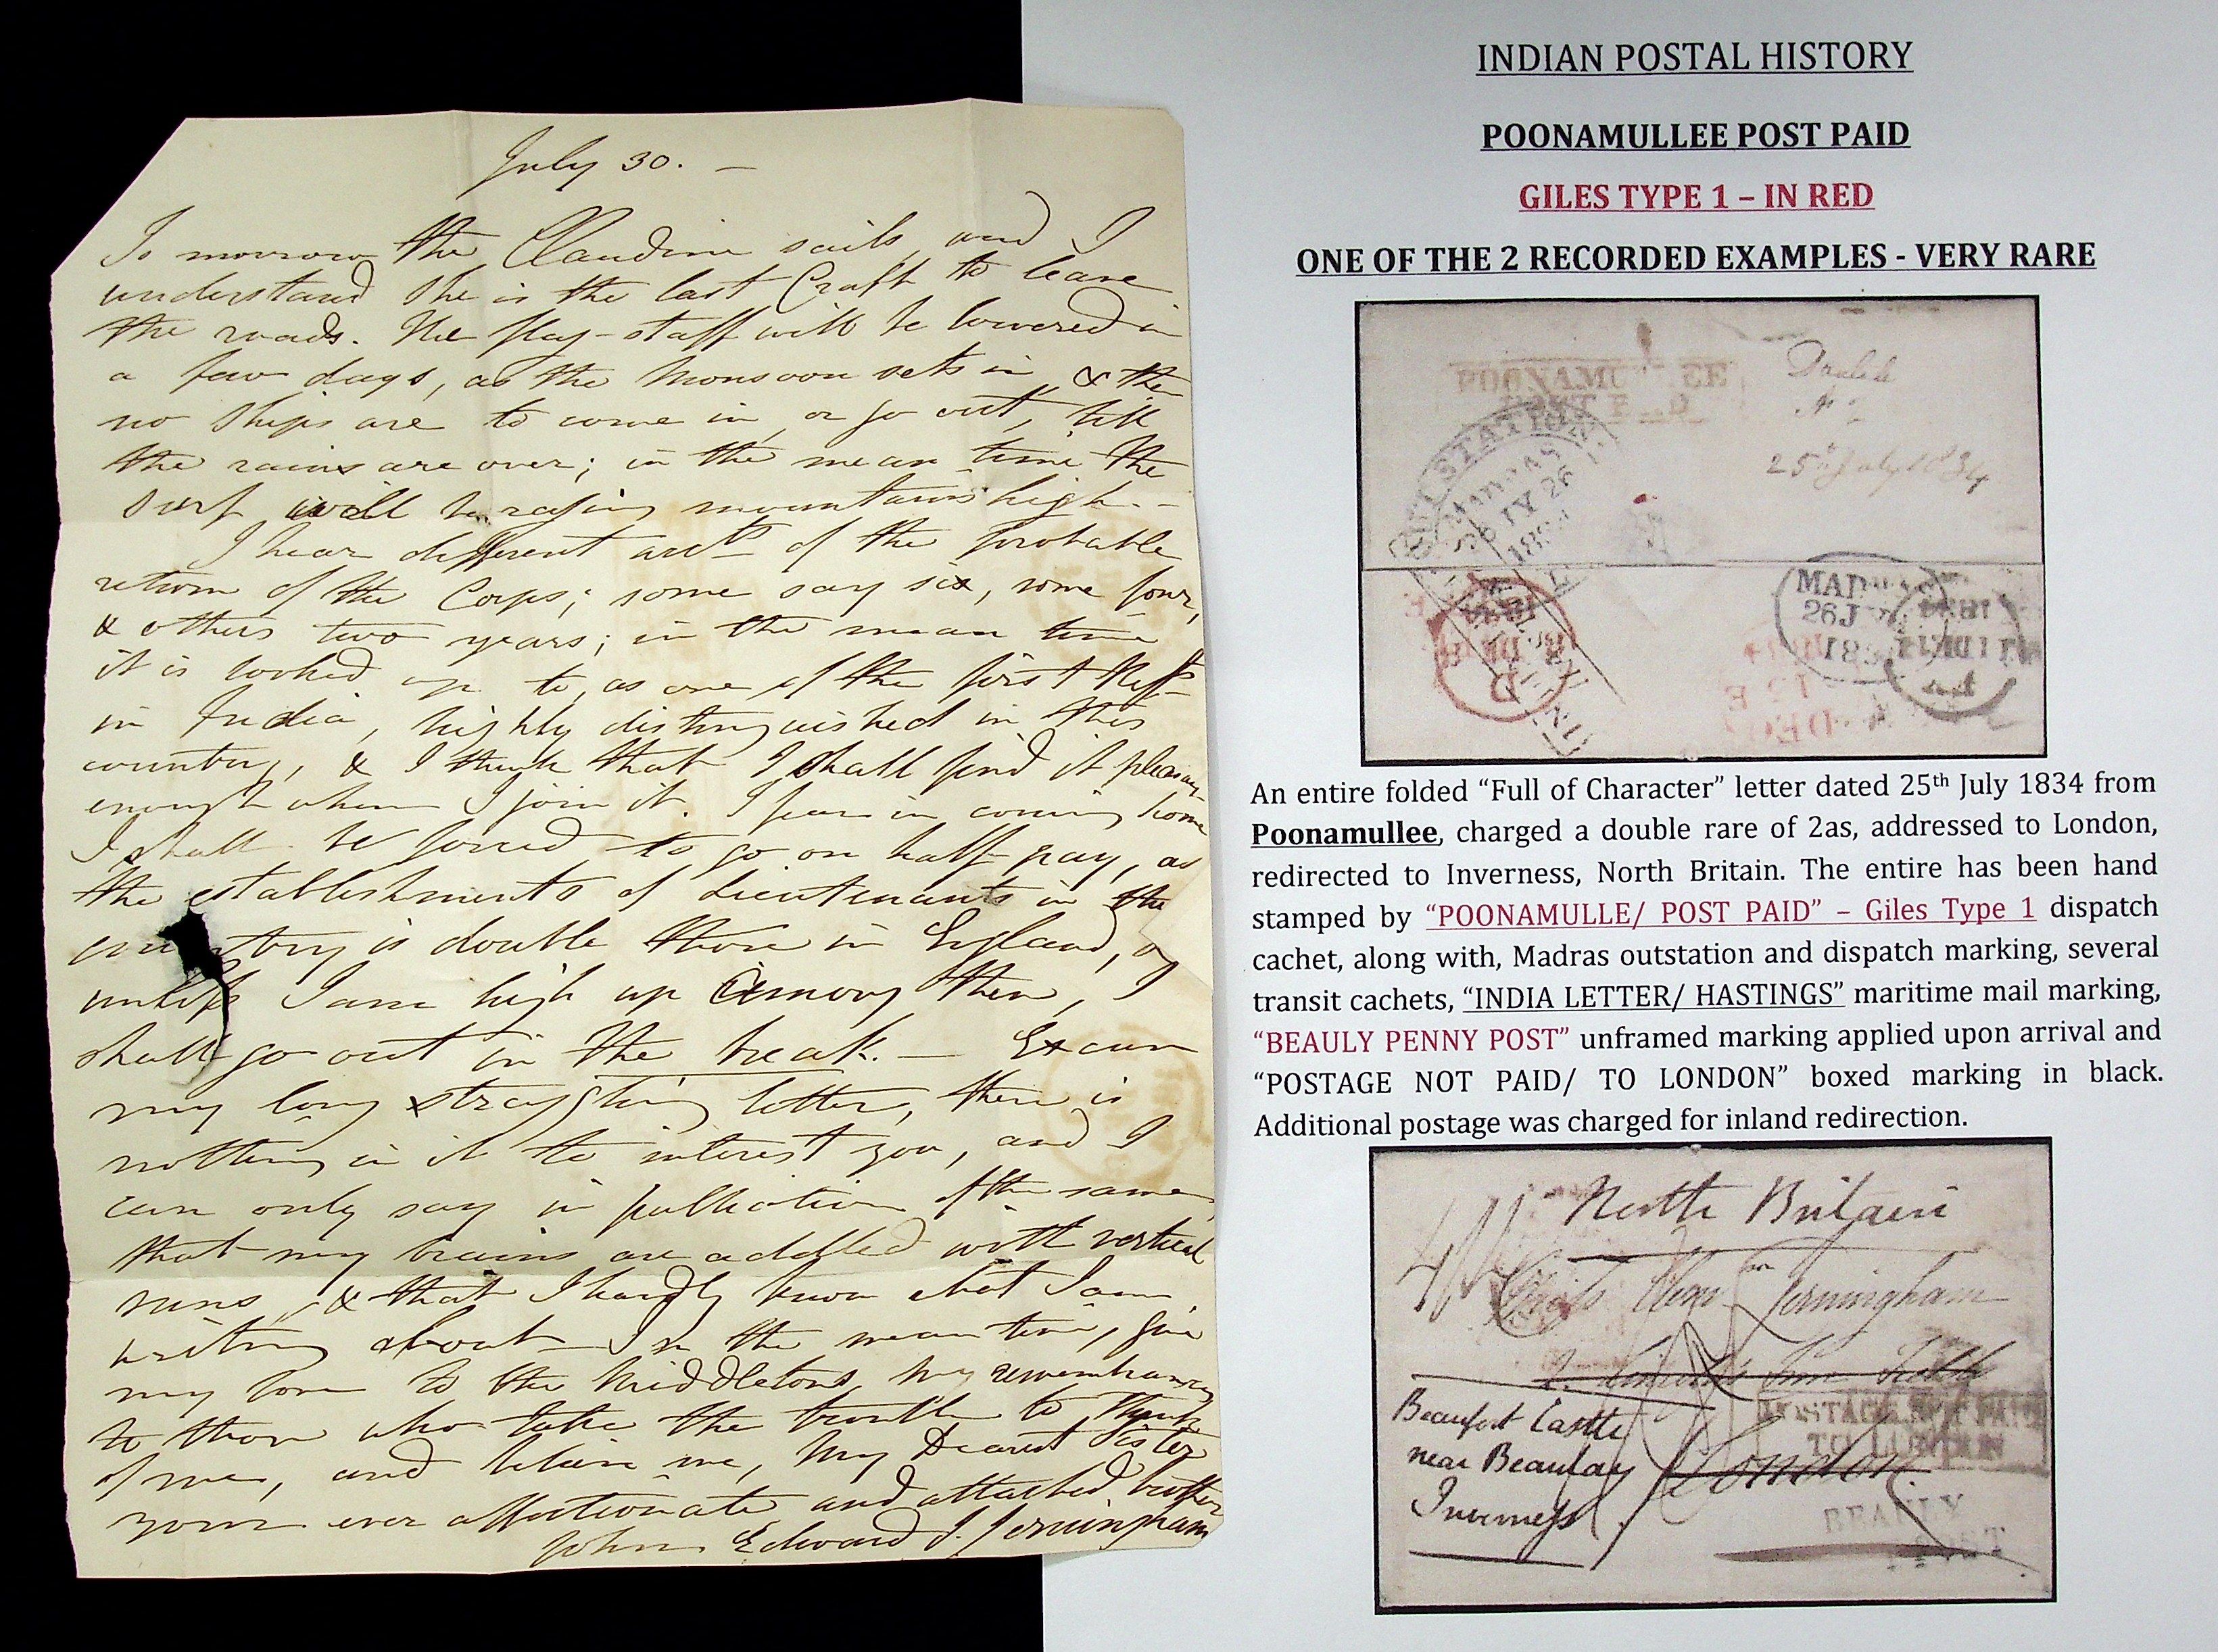 July 30. —
To morrow the Claudine sails, and I
understand she is the last Craft to leave
the roads. The flag-staff will be lowered in
a few days, as the Monsoon sets in, & then
no Ships are to come in, or go out, till
the rains are over; in the mean time the
surf will be raging mountains high. -
I hear different accts of the probable
return of the Corps; some say six, some four,
& others two years; in the mean time
it is looked up to, as one of the first Regts
in India, highly distinguished in this
country, & I think that I shall find it pleasant
enough when I join it. I fear in coming home
I shall be forced to go on half-pay, as
the establishments of Lieutenants in the
country is double those in England,
unless I am high up among them, I
shall go out in the break. — Excuse
my long straggling letter, there is
nothing in it to interest you, and I
can only say in palliation of the same,
that my brains are addled with vertical
suns, & that I hardly know what I am
writing about - In the mean time, give
my love to the Middletons, my remembrances
to those who take the trouble to think
of me, and believe me, My Dearest Sister
your ever affectionate and attached brother
John Edward J. Jerningham
INDIAN POSTAL HISTORY
POONAMULLEE POST PAID
GILES TYPE 1 – IN RED
ONE OF THE 2 RECORDED EXAMPLES - VERY RARE
POONAMU LEE
POST P D
Double
25th July 1834
STATION
MADRAS
26
MAD
26 J
183
An entire folded “Full of Character” letter dated 25th July 1834 from
Poonamullee, charged a double rare of 2as, addressed to London,
redirected to Inverness, North Britain. The entire has been hand
stamped by “POONAMULLE/ POST PAID” – Giles Type 1 dispatch
cachet, along with, Madras outstation and dispatch marking, several
transit cachets, “INDIA LETTER/ HASTINGS” maritime mail marking,
“BEAULY PENNY POST” unframed marking applied upon arrival and
“POSTAGE NOT PAID/ TO LONDON” boxed marking in black.
Additional postage was charged for inland redirection.
North Britain
Jerningham
Lincoln's Inn Fields
POSTAGE NOT PAID
TO LONDON
Beaufort Castle
near Beaulay
London
Inverness
BEAULY
POST